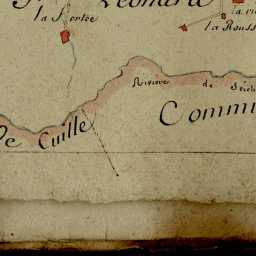 Leonard
la Sortie
la Rouss
Riviere de Seich
Commu
De Cuillé